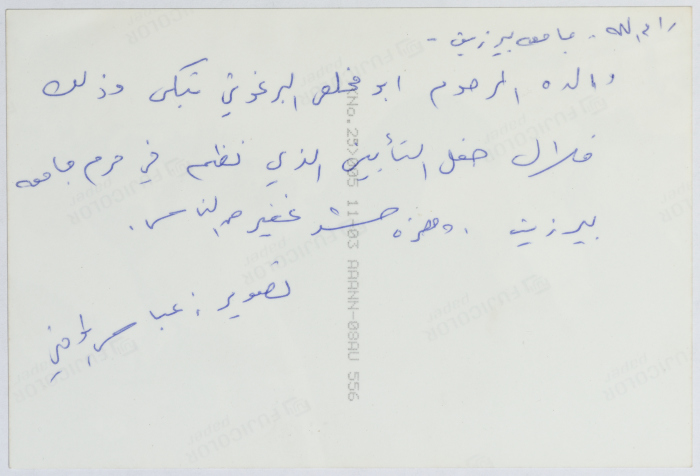 رام الله . جامعه بيرزيت -
والده المرحوم ابو مخلص البرغوثي تبكي وذلك
خلال حفل التأبين الذي نظم في حرم جامعه
بيرزيت . وحضره حشد غفير من الناس .
تصوير : عباس
No. 23>005 11-03 AAANN-08AU 556
FUJICOLOR